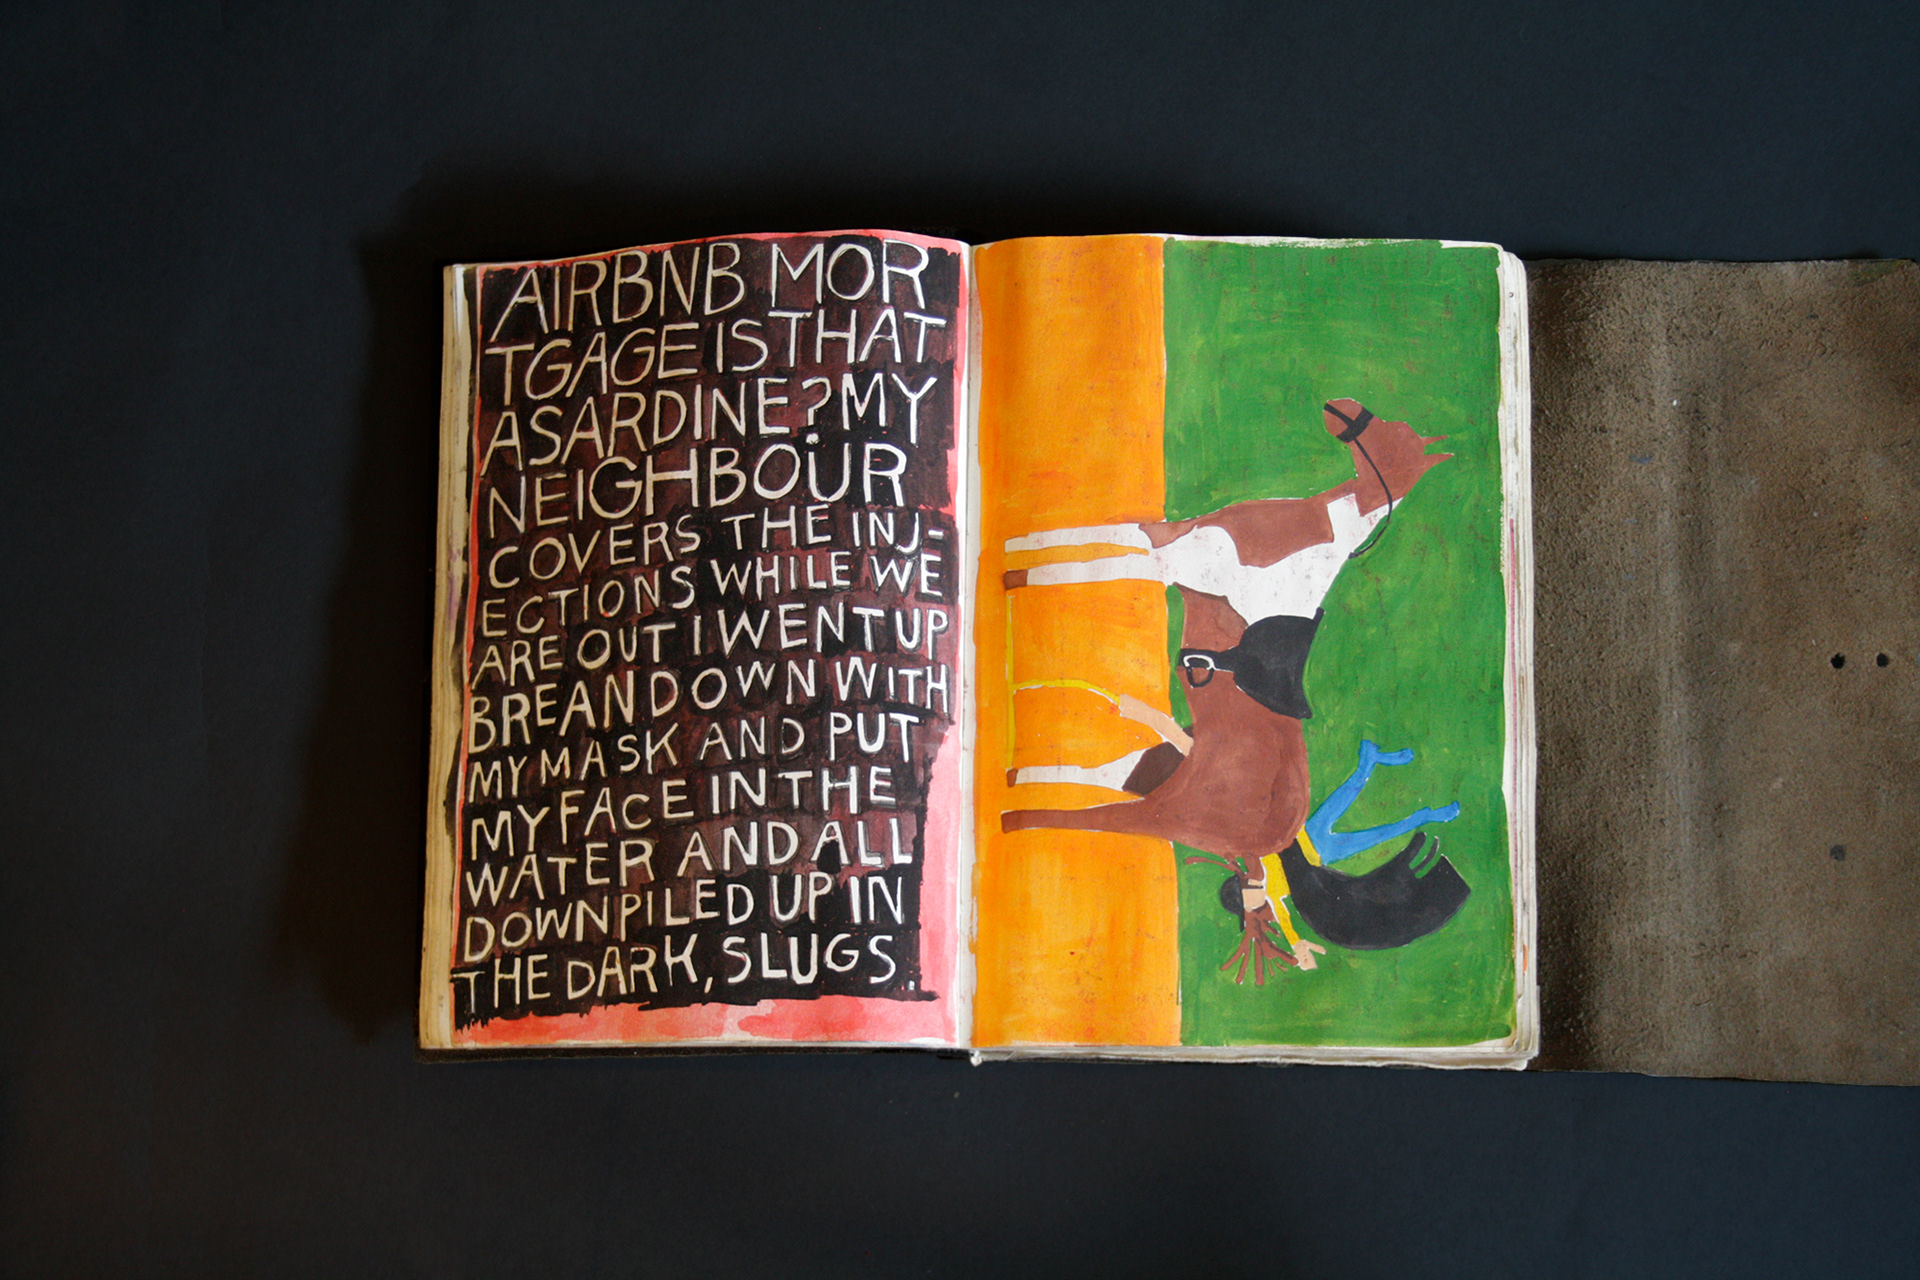 AIRBNB MOR
TGAGE IS THAT
A SARDINE? MY
NEIGHBOUR
COVERS THE INJ-
ECTIONS WHILE WE
ARE OUT I WENT UP
BREAN DOWN WITH
MY MASK AND PUT
MY FACE IN THE
WATER AND ALL
DOWN PILED UP IN
THE DARK, SLUGS.